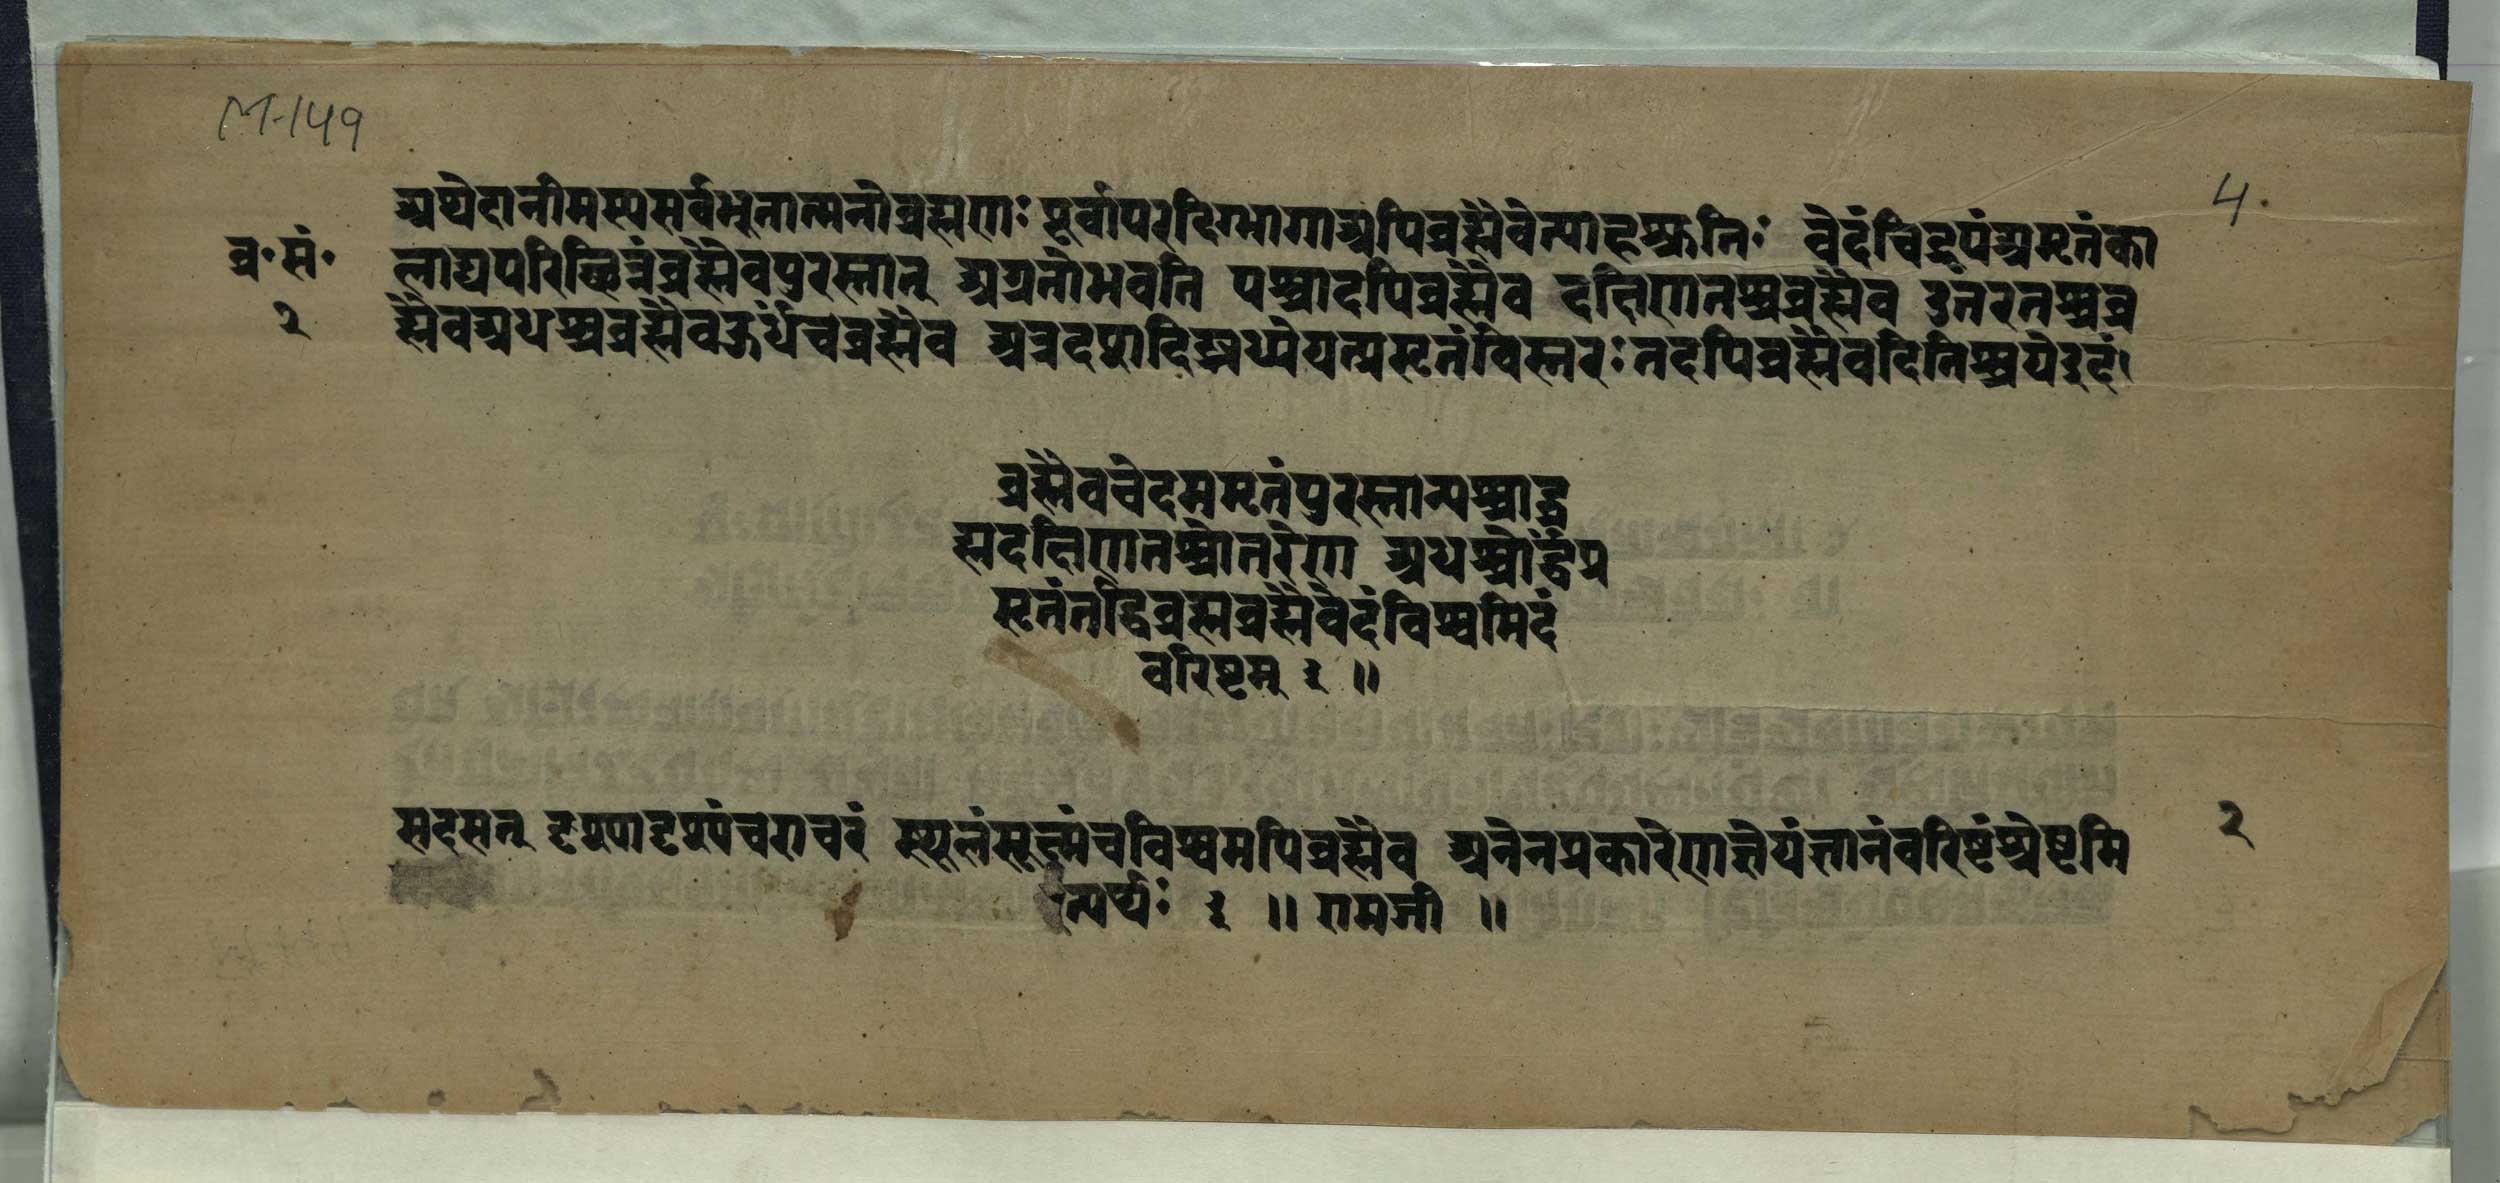 M-149
4.
अथेदानीमस्यसर्वभूतात्मनोब्रह्मणः पूर्वापरदिग्भागाअपिब्रह्मैवेत्याहश्रुतिः वेदंचिद्रूपंअमृतंका
ब्र॰सं॰
लाद्यपरिछिन्नंब्रह्मैवपुरस्तात् अग्रतोभवति पश्चादपिब्रह्मैव दक्षिणतश्चब्रह्मैव उत्तरतश्चब्र
२
ह्मैवअधश्चब्रह्मैवऊर्धंचब्रह्मैव अत्रदशादिङ्मध्येयत्प्रसृतंविस्तरः तदपिब्रह्मैवदितिश्च
ब्रह्मैवचेदममृतंपुरस्तात्पश्चाद्ब्र
ह्मदक्षिणतश्चोत्तरेण अधश्चोर्द्ध्वंप्र
सृतंतद्धिब्रह्मब्रह्मैवेदंविश्वमिदं
वरिष्टम् ३ ॥
सदसत् दृश्यादृश्यंचराचरं स्थूलंसूक्ष्मंचविश्वमपिब्रह्मैव अनेनप्रकारेणाज्ञेयंज्ञानंवरिष्टंश्रेष्टमि
२
त्यर्थः ३ ॥ रामजी ॥